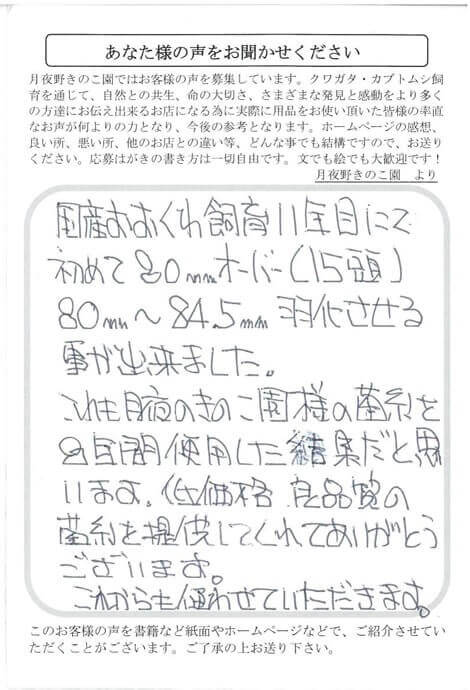 あなた様の声をお聞かせください
月夜野きのこ園ではお客様の声を募集しています。クワガタ・カブトムシ飼
育を通じて、自然との共生、命の大切さ、さまざまな発見と感動をより多く
の方達にお伝え出来るお店になる為に実際に用品をお使い頂いた皆様の率直
なお声が何よりの力となり、今後の参考となります。ホームページの感想、
良い所、悪い所、他のお店との違い等、どんな事でも結構ですので、お送り
ください。応募はがきの書き方は一切自由です。文でも絵でも大歓迎です！
月夜野きのこ園　より
国産おおくわ飼育11年目にて
初めて80mmオーバー(15頭)
80mm～84.5mm羽化させる
事が出来ました。
これも月夜のきのこ園様の菌糸を
2年間使用した結果だと思
います。低価格 良品質の
菌糸を提供してくれてありがとう
ございます。
これからも使わせていただきます。
このお客様の声を書籍など紙面やホームページなどで、ご紹介させてい
ただくことがございます。ご了承の上お送り下さい。